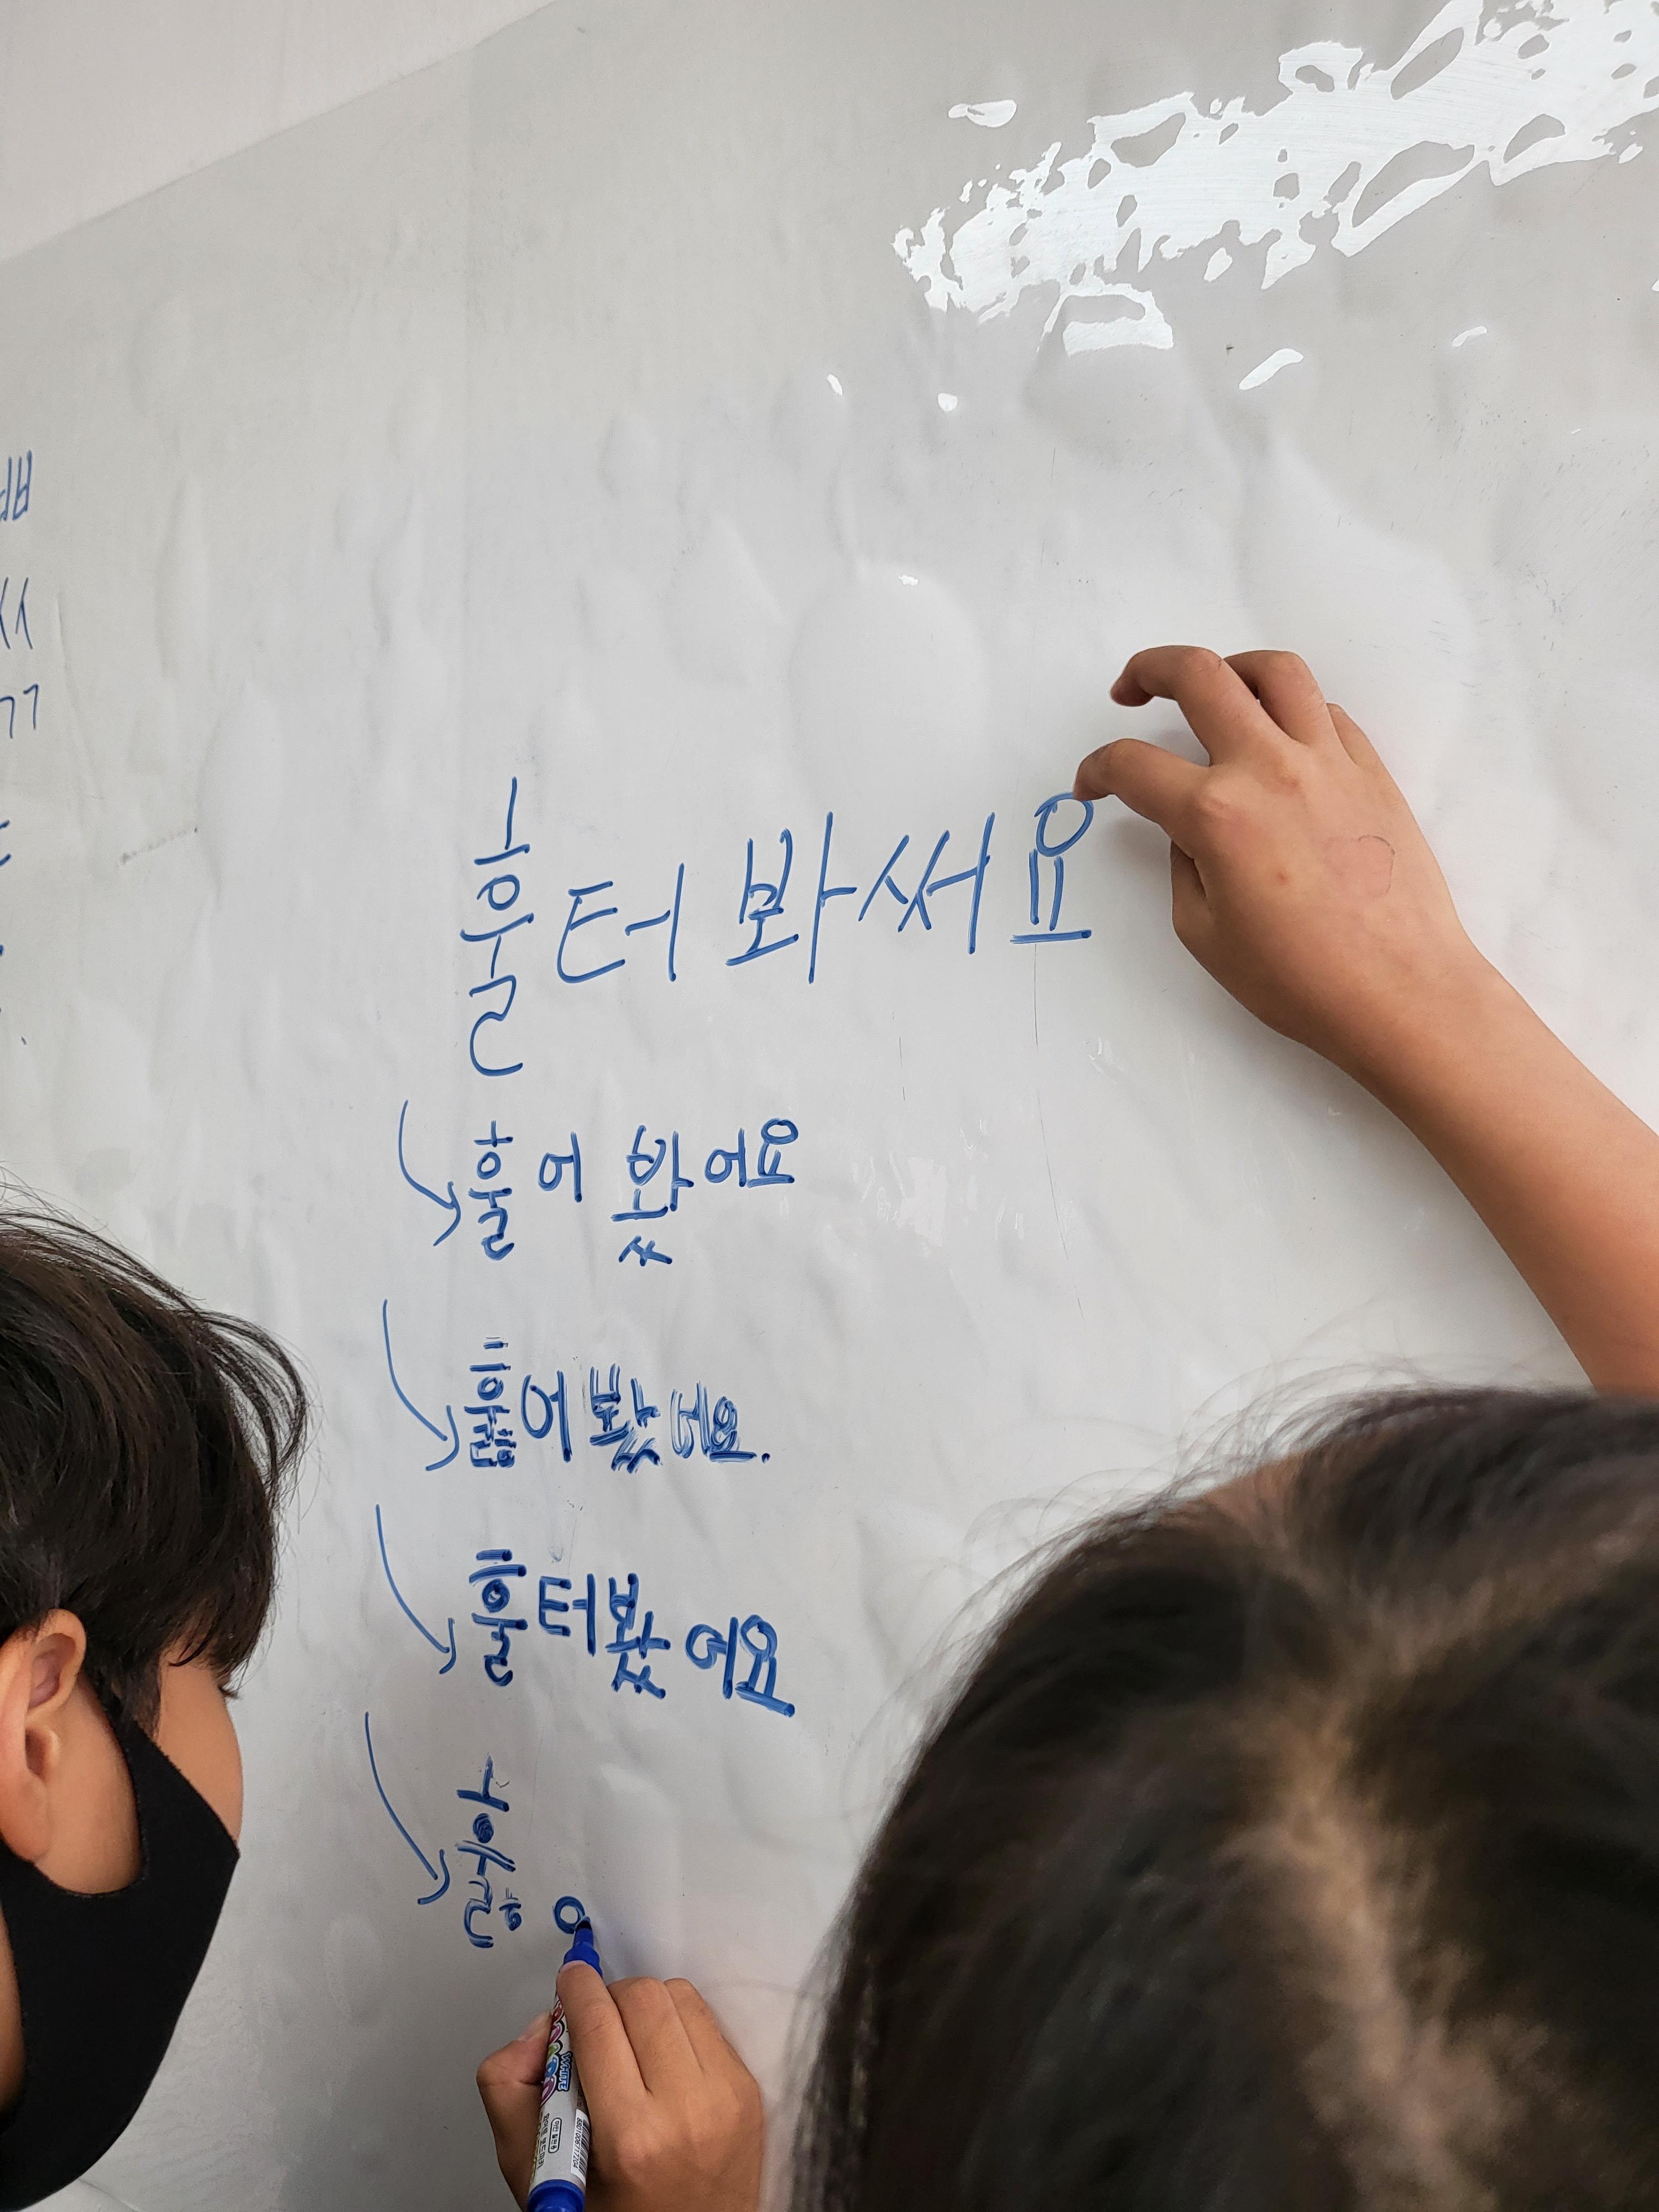 훌터 봐써요
훌어 봤어요
훏어봤어요.
훌터봤어요